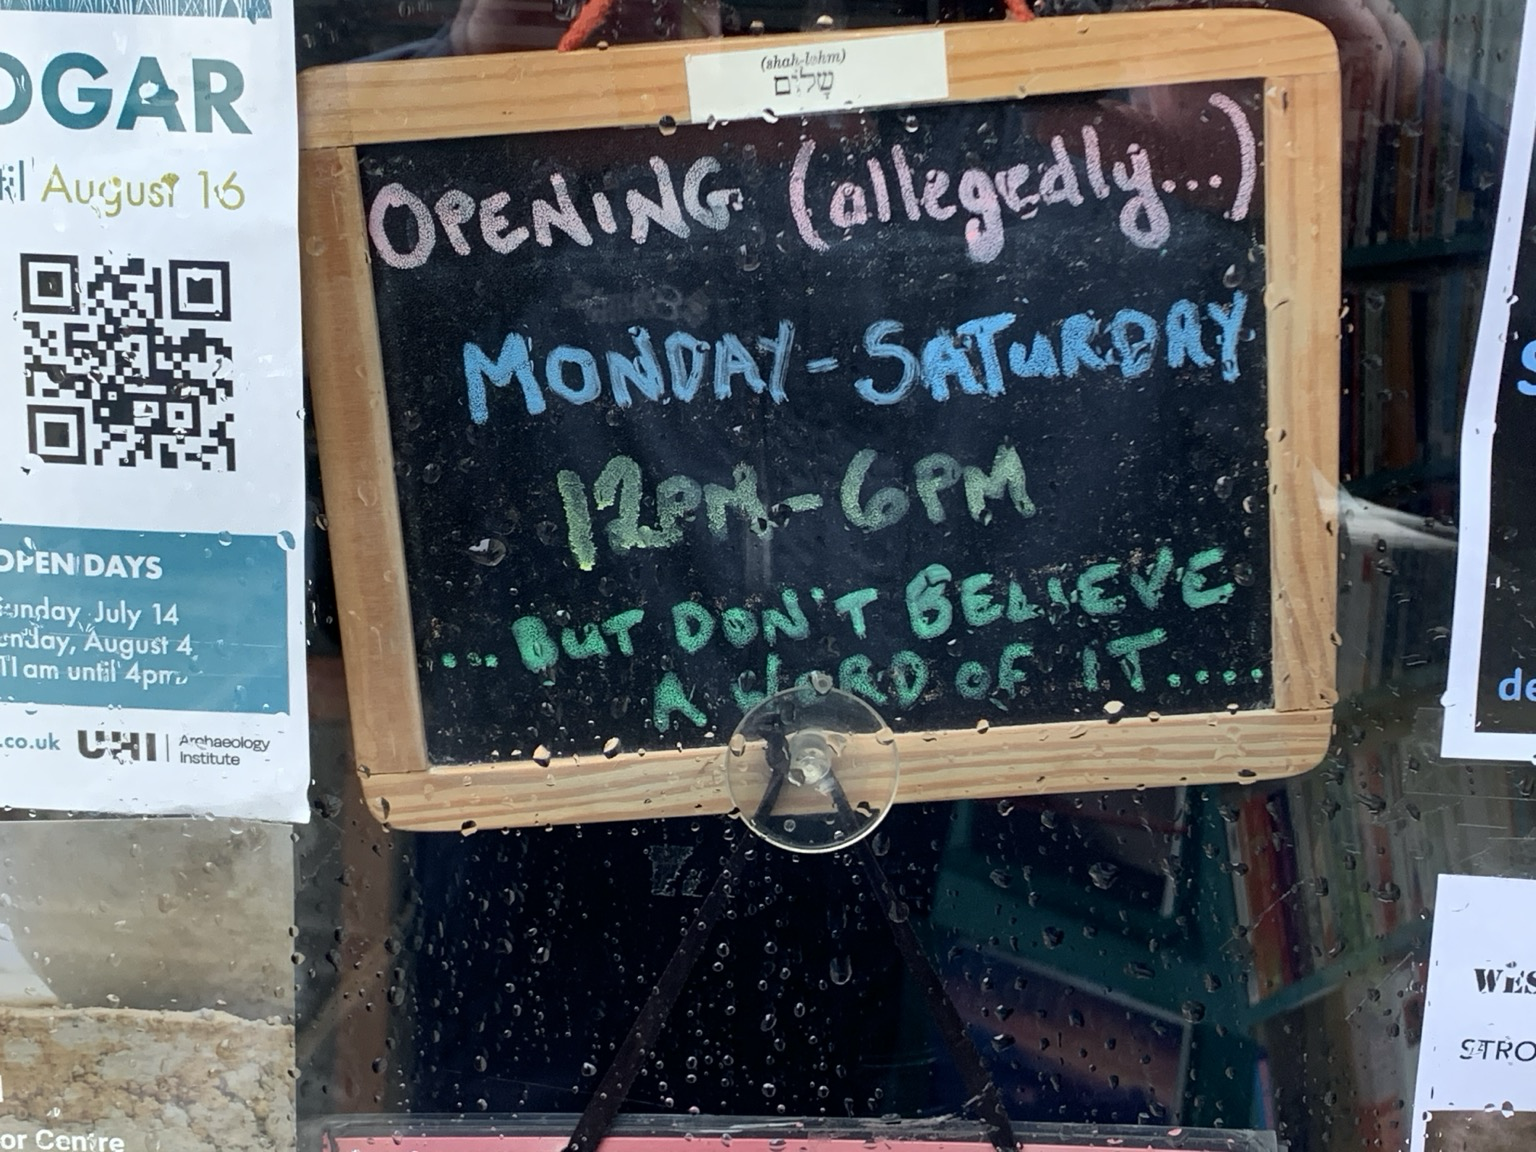 OGAR
til August 16
OPEN DAYS
Sunday July 14
Sunday, August 4
11am until 4pm
.co.uk
UHI
Archaeology
Institute
or Centre
(shah-lohm)
שָׁלוֹם
OPENING (allegedly...)
MONDAY-SATURDAY
12PM-6PM
...BUT DON'T BELIEVE
A WORD OF IT....
S
de
WES
STRO